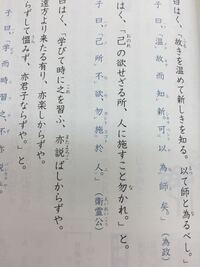 曰はく、「故きを温めて新しきを知る。以て師と為るべし。」
子曰、「温故而知新、可以為師矣。」(為政)
曰はく、「己の欲せざる所、人に施すこと勿かれ。」と。
子曰、「己所不欲、勿施於人。」(衛霊公)
曰はく、「学びて時に之を習ふ、亦説ばしからずや。
遠方より来たる有り、亦楽しからずや。
らずして慍みず、亦君子ならずや。」と。
子曰、「学而時習之、不亦説